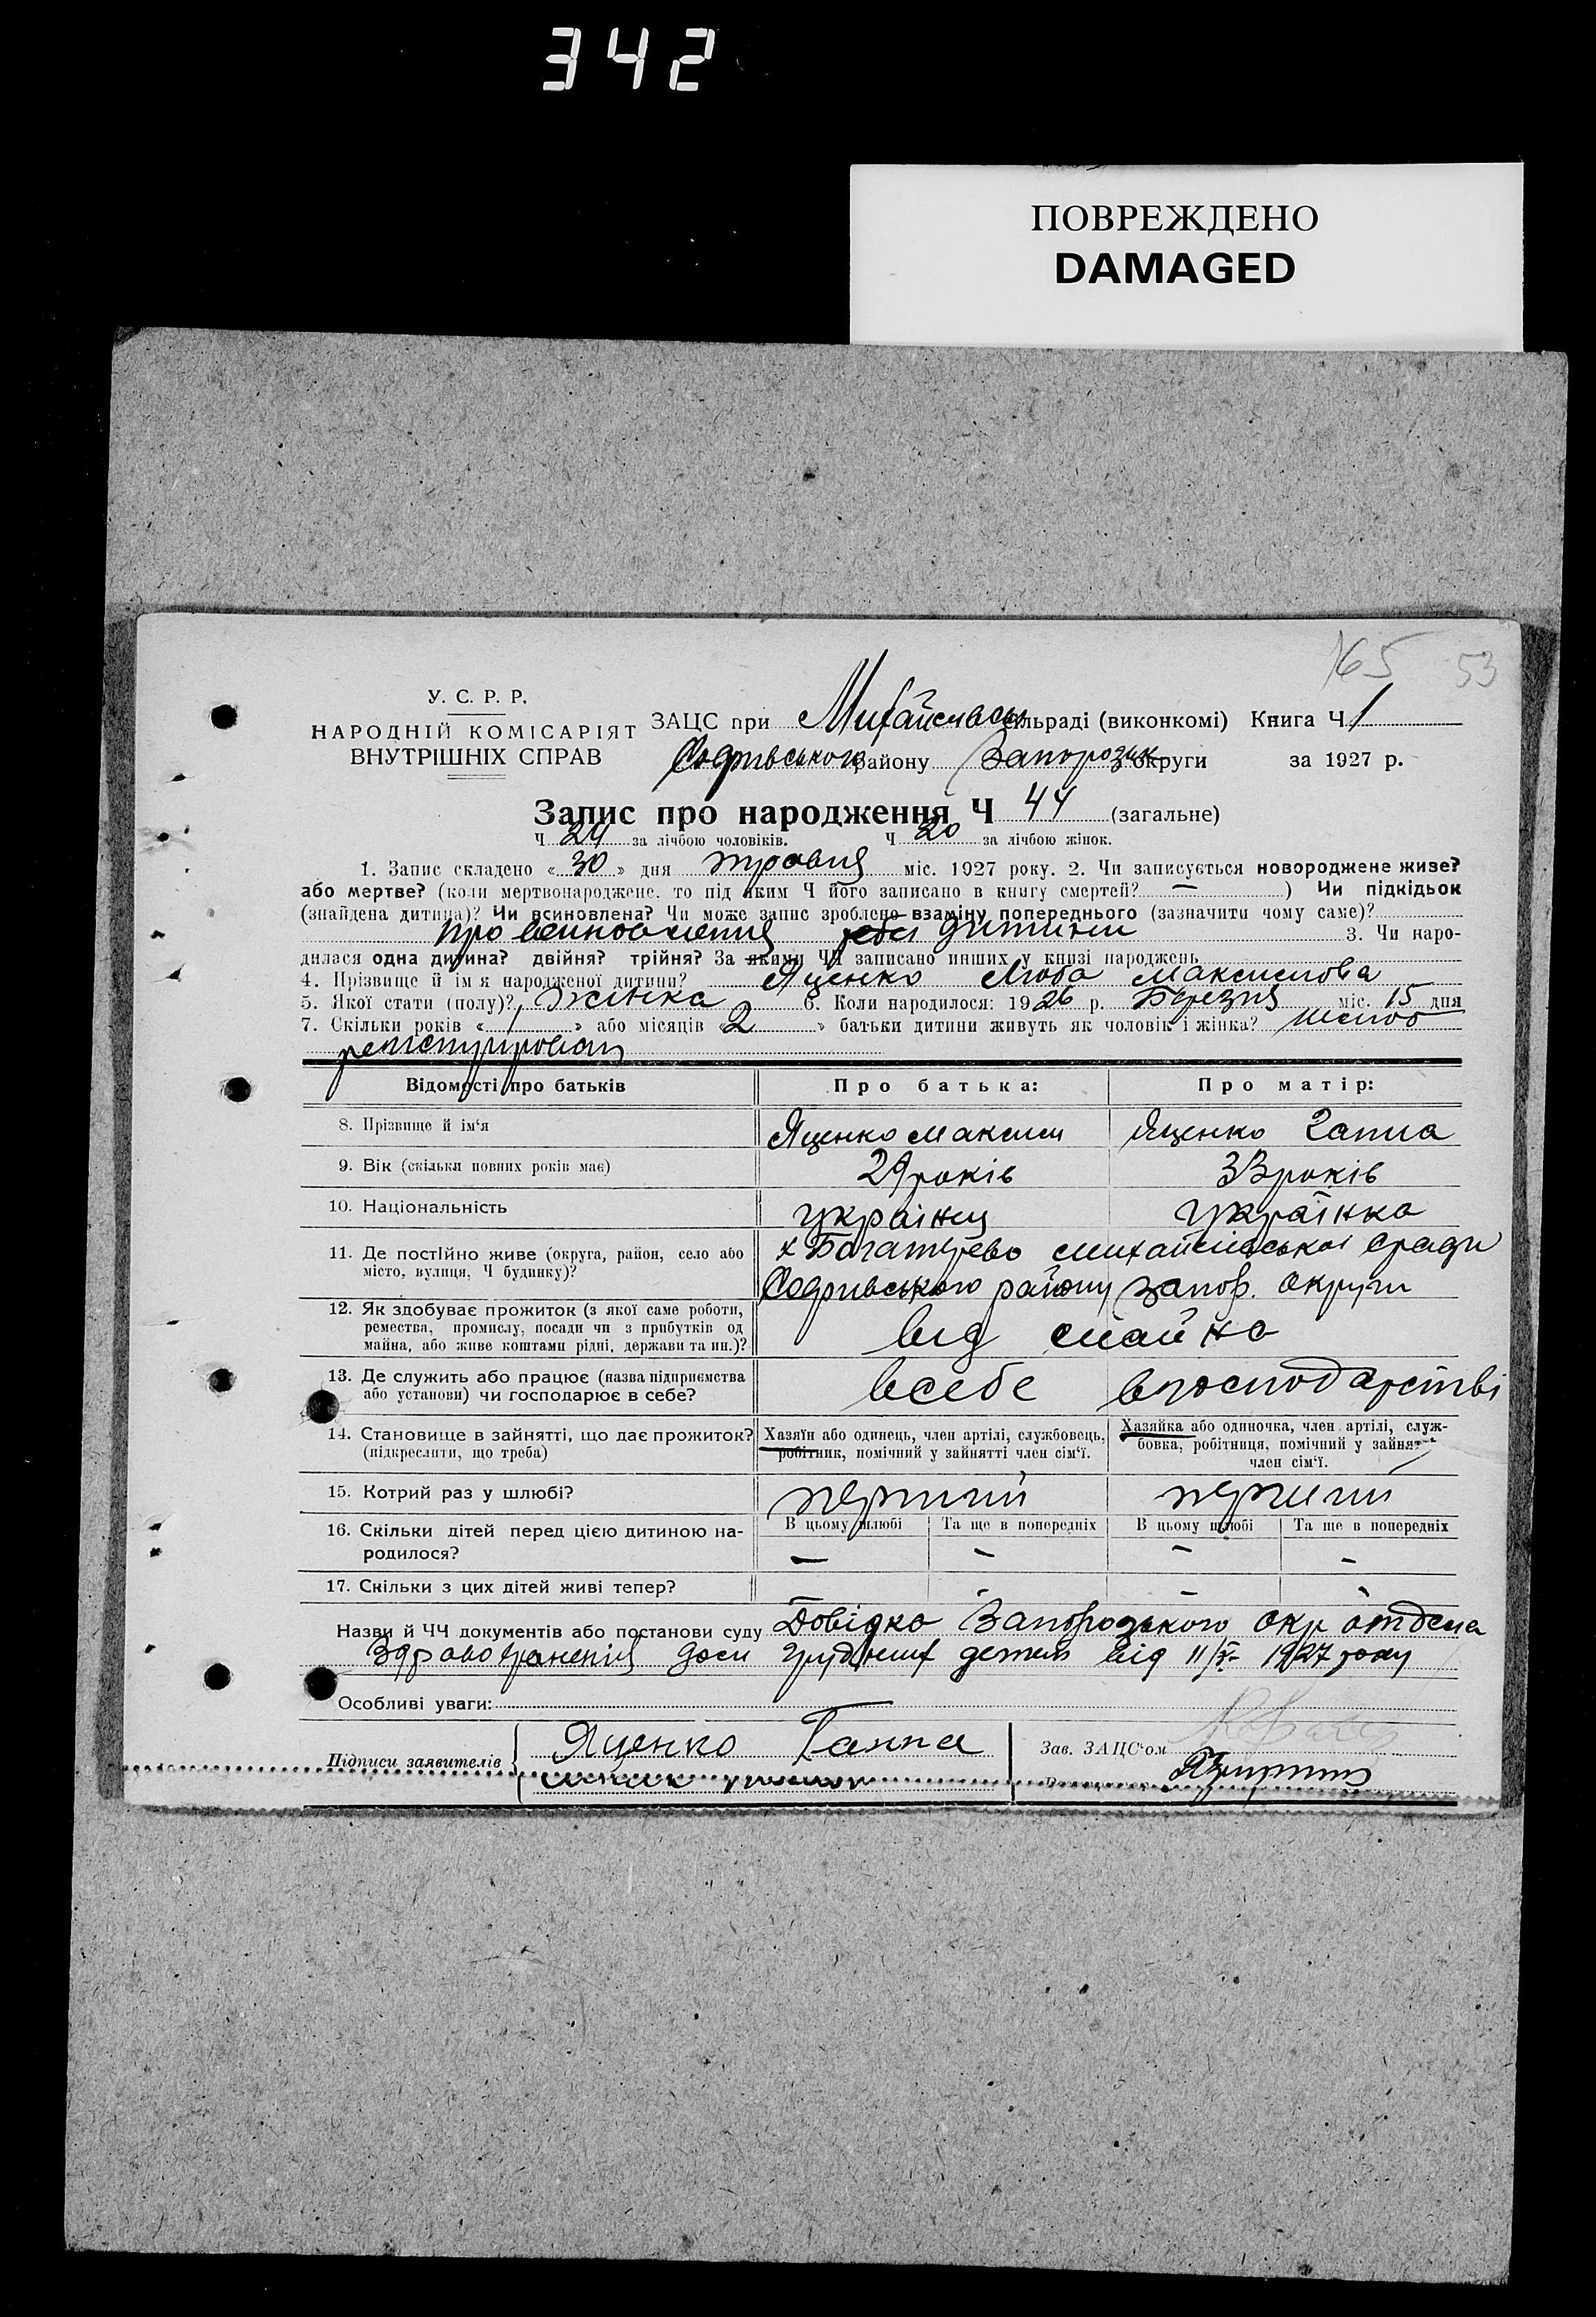 342
ПОВРЕЖДЕНО
DAMAGED
165 53
У. С. Р. Р.
НАРОДНІЙ КОМІСАРІЯТ
ВНУТРІШНІХ СПРАВ
ЗАЦС при Михайлівськ сільраді (виконкомі) Книга Ч 1
району Запорозьк округи за 1927 р.
Запис про народження Ч 44 (загальне)
Ч 24 за лічбою чоловіків. Ч 20 за лічбою жінок.
1. Запис складено « 30 » дня травня міс. 1927 року. 2. Чи записується новороджене живе?
або мертве? (коли мертвонароджене, то під яким Ч його записано в книгу смертей? — ) Чи підкідьок
(знайдена дитина)? Чи всиновлена? Чи може запис зроблено взаміну попереднього (зазначити чому саме)?
про всиновлення себе дитини 3. Чи наро-
дилася одна дитина? двійня? трійня? За якими ЧЧ записано инших у книзі народжень
4. Прізвище й ім'я народженої дитини? Яценко Люба Максимова
5. Якої стати (полу)? Жінка 6. Коли народилося: 1926 р. Березня міс. 15 дня
7. Скільки років « 1 » або місяців « 2 » батьки дитини живуть як чоловік і жінка?
Відомості про батьків Про батька: Про матір:
8. Прізвище й ім'я Яценко Максим Яценко Ганна
9. Вік (скільки повних років має) 29 років 33 років
10. Національність українец українка
11. Де постійно живе (округа, район, село або
місто, вулиця, Ч будинку)?
х Богатирево михайлівської сради
району запор. округи
12. Як здобуває прожиток (з якої саме роботи,
ремества, промислу, посади чи з прибутків од
майна, або живе коштами рідні, держави та ин.)?
від майна
13. Де служить або працює (назва підприємства
або установи) чи господарює в себе?
всебе в господарстві
14. Становище в зайнятті, що дає прожиток?
(підкреслити, що треба)
Хазяїн або одинець, член артілі, службовець,
робітник, помічний у зайнятті член сім'ї.
Хазяйка або одиночка, член артілі, служ-
бовка, робітниця, помічний у зайнятті
член сім'ї.
15. Котрий раз у шлюбі? перший перший
16. Скільки дітей перед цією дитиною на-
родилося?
В цьому шлюбі Та ще в попередніх В цьому шлюбі Та ще в попередніх
— — — —
17. Скільки з цих дітей живі тепер? - - - -
Назви й ЧЧ документів або постанови суду Довідка Запорозького окр отдела
Здравохраненія грудних детей від 11/V- 1927 року
Особливі уваги:
Підписи заявителів Яценко Ганна
Зав. ЗАЦС'ом